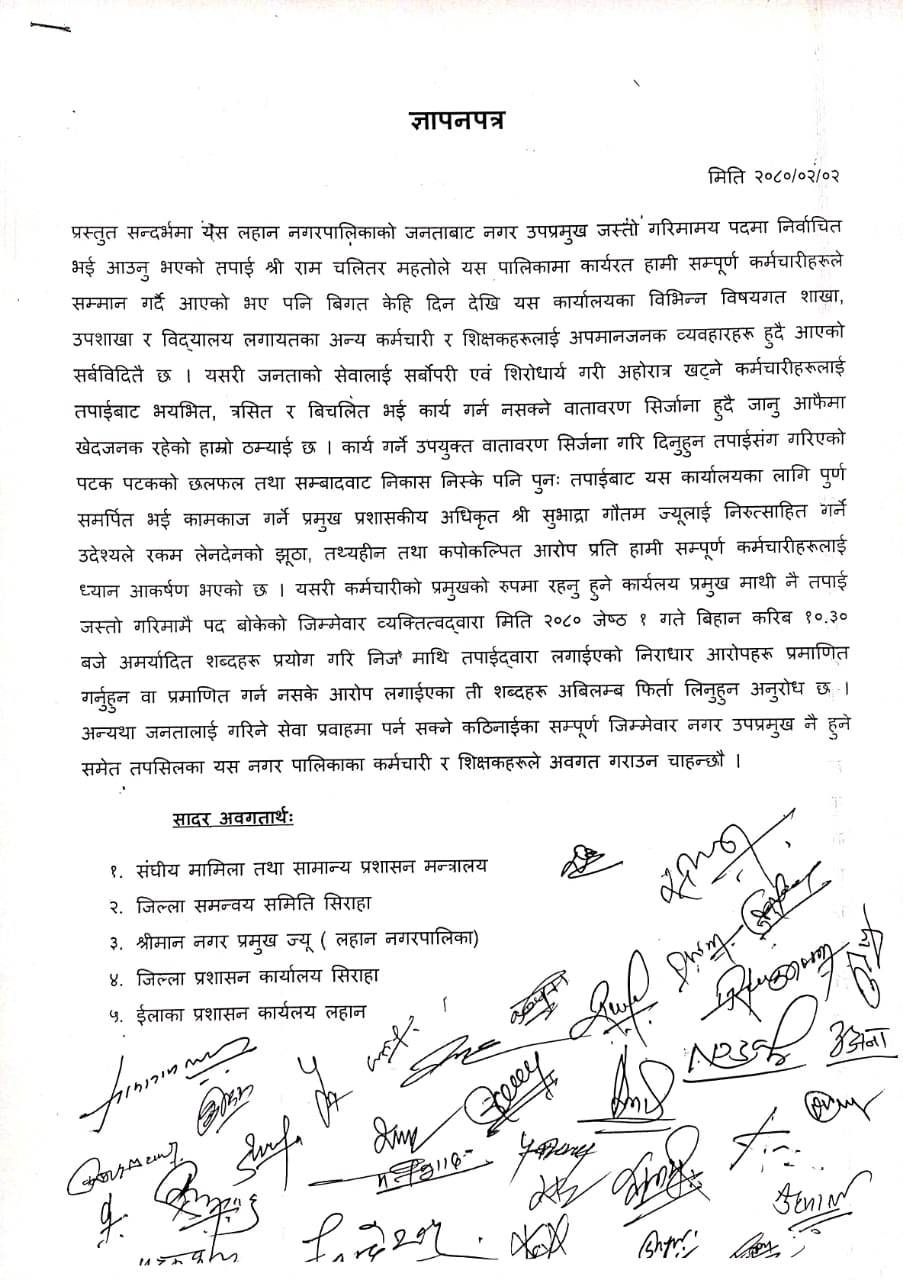 ज्ञापनपत्र
मिति २०८०/०२/०२
प्रस्तुत सन्दर्भमा यस लहान नगरपालिकाको जनताबाट नगर उपप्रमुख जस्तो गरिमामय पदमा निर्वाचित
भई आउनु भएको तपाई श्री राम चलितर महतोले यस पालिकामा कार्यरत हामी सम्पूर्ण कर्मचारीहरूले
सम्मान गर्दै आएको भए पनि बिगत केहि दिन देखि यस कार्यालयका विभिन्न विषयगत शाखा,
उपशाखा र विद्यालय लगायतका अन्य कर्मचारी र शिक्षकहरूलाई अपमानजनक व्यवहारहरू हुदै आएको
सर्बविदितै छ । यसरी जनताको सेवालाई सर्बोपरी एवं शिरोधार्य गरी अहोरात्र खट्ने कर्मचारीहरूलाई
तपाईबाट भयभित, त्रसित र बिचलित भई कार्य गर्न नसक्ने वातावरण सिर्जाना हुदै जानु आफैमा
खेदजनक रहेको हाम्रो ठम्याई छ । कार्य गर्ने उपयुक्त वातावरण सिर्जना गरि दिनुहुन तपाईसंग गरिएको
पटक पटकको छलफल तथा सम्बादवाट निकास निस्के पनि पुनः तपाईबाट यस कार्यालयका लागि पुर्ण
समर्पित भई कामकाज गर्ने प्रमुख प्रशासकीय अधिकृत श्री सुभाद्रा गौतम ज्यूलाई निरुत्साहित गर्ने
उदेश्यले रकम लेनदेनको झूठा, तथ्यहीन तथा कपोकल्पित आरोप प्रति हामी सम्पूर्ण कर्मचारीहरूलाई
ध्यान आकर्षण भएको छ । यसरी कर्मचारीको प्रमुखको रुपमा रहनु हुने कार्यलय प्रमुख माथी नै तपाई
जस्तो गरिमामै पद बोकेको जिम्मेवार व्यक्तित्वद्वारा मिति २०८० जेष्ठ १ गते बिहान करिब १०.३०
बजे अमर्यादित शब्दहरू प्रयोग गरि निज माथि तपाईद्वारा लगाईएको निराधार आरोपहरू प्रमाणित
गर्नुहुन वा प्रमाणित गर्न नसके आरोप लगाईएका ती शब्दहरू अबिलम्ब फिर्ता लिनुहुन अनुरोध छ ।
अन्यथा जनतालाई गरिने सेवा प्रवाहमा पर्न सक्ने कठिनाईका सम्पूर्ण जिम्मेवार नगर उपप्रमुख नै हुने
समेत तपसिलका यस नगर पालिकाका कर्मचारी र शिक्षकहरूले अवगत गराउन चाहन्छौ ।
सादर अवगतार्थः
१. संघीय मामिला तथा सामान्य प्रशासन मन्त्रालय
२. जिल्ला समन्वय समिति सिराहा
३. श्रीमान नगर प्रमुख ज्यू ( लहान नगरपालिका)
४. जिल्ला प्रशासन कार्यालय सिराहा
५. ईलाका प्रशासन कार्यलय लहान